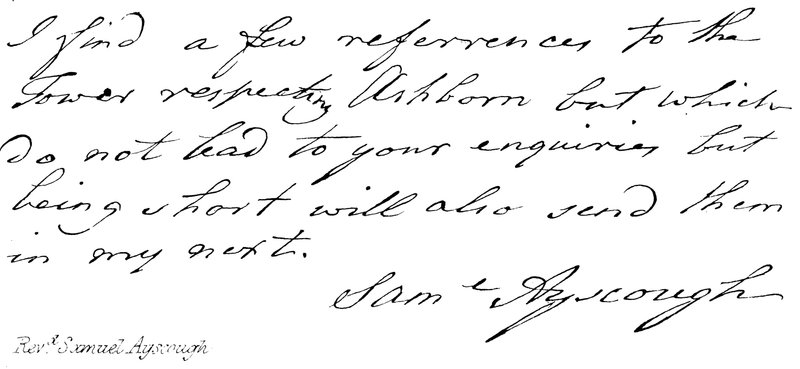 I find a few referrences to the
Tower respecting Ashborn but which
do not lead to your enquiries but
being short will also send them
in my next.
Sam^l Ayscough
Rev.^d Samuel Ayscough